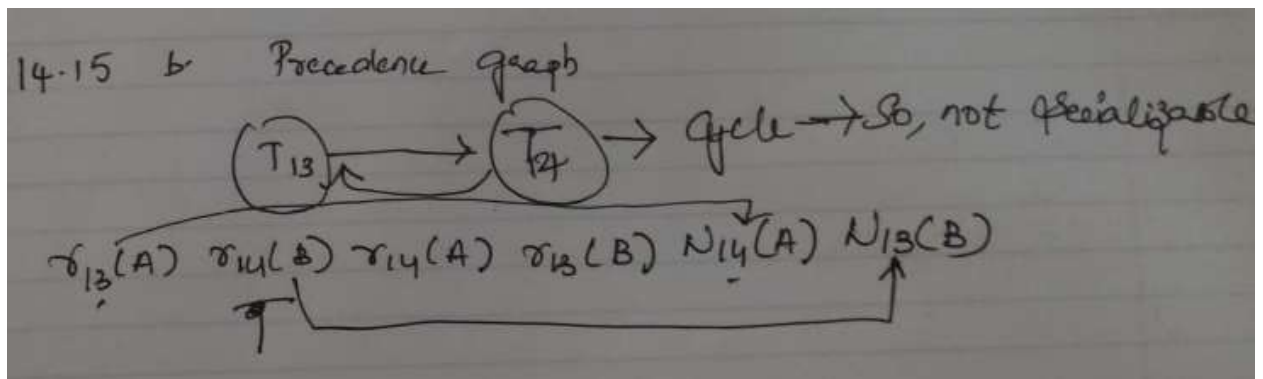 14.15 b. Precedence graph
T13 → T24 → Cycle → So, not serializable
r13(A) r14(B) r14(A) r13(B) W14(A) W13(B)
T